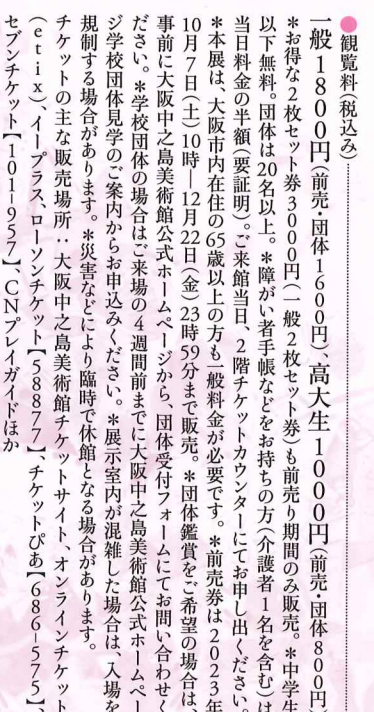 ●観覧料(税込み)
一般1800円(前売・団体1600円)、高大生1000円(前売・団体800円)
＊お得な2枚セット券3000円(一般2枚セット券)も前売り期間のみ販売。＊中学生
以下無料。団体は20名以上。＊障がい者手帳などをお持ちの方(介護者1名を含む)は
当日料金の半額(要証明)。ご来館当日、2階チケットカウンターにてお申し出ください。
＊本展は、大阪市内在住の65歳以上の方も一般料金が必要です。＊前売券は2023年
10月7日(土)10時―12月22日(金)23時59分まで販売。＊団体鑑賞をご希望の場合は、
事前に大阪中之島美術館公式ホームページから、団体受付フォームにてお問い合わせく
ださい。＊学校団体の場合はご来場の4週間前までに大阪中之島美術館公式ホームペー
ジ学校団体見学のご案内からお申込みください。＊展示室内が混雑した場合は、入場を
規制する場合があります。＊災害などにより臨時で休館となる場合があります。
チケットの主な販売場所:大阪中之島美術館チケットサイト、オンラインチケット
(etix)、イープラス、ローソンチケット【58877】、チケットぴあ【686-575】、
セブンチケット【101-957】、CNプレイガイドほか